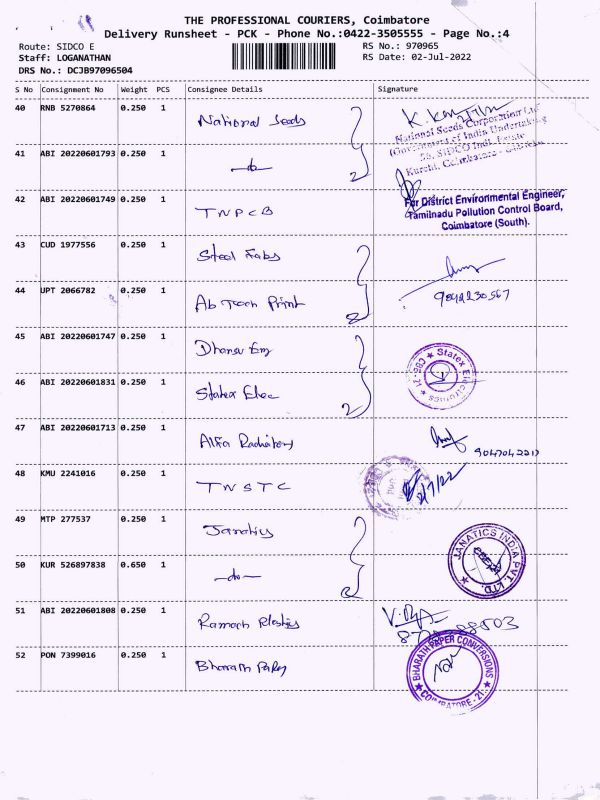 THE PROFESSIONAL COURIERS, Coimbatore
Delivery Runsheet - PCK - Phone No.:0422-3505555 - Page No.:4
Route: SIDCO E
RS No.: 970965
Staff: LOGANATHAN
RS Date: 02-Jul-2022
DRS No.: DCJB97096504
S No Consignment No Weight PCS Consignee Details Signature
40 RNB 5270864 0.250 1 National Seeds
National Seeds Corporation Ltd
(Government of India Undertaking)
SIDCO Indl. Estate
Kurchi, Coimbatore -
41 ABI 20220601793 0.250 1 -do- 2
42 ABI 20220601749 0.250 1 TNPCB
For District Environmental Engineer,
Tamilnadu Pollution Control Board,
Coimbatore (South).
43 CUD 1977556 0.250 1 Steel Fabs
44 UPT 2066782 0.250 1 Ab Tech Print 2 9842230567
45 ABI 20220601747 0.250 1
46 ABI 20220601831 0.250 1 Statex Elec 2
★ Statex Electronics ★ CBE-21
47 ABI 20220601713 0.250 1 Alfa Radiators
48 KMU 2241016 0.250 1 TNSTC 2/7/22
49 MTP 277537 0.250 1 Janatics
50 KUR 526897838 0.650 1 -do- 2
JANATICS INDIA PVT. LTD. ★
51 ABI 20220601808 0.250 1
52 PON 7399016 0.250 1 Bharath
★ BHARATH PAPER CONVERSIONS ★ COIMBATORE - 21.